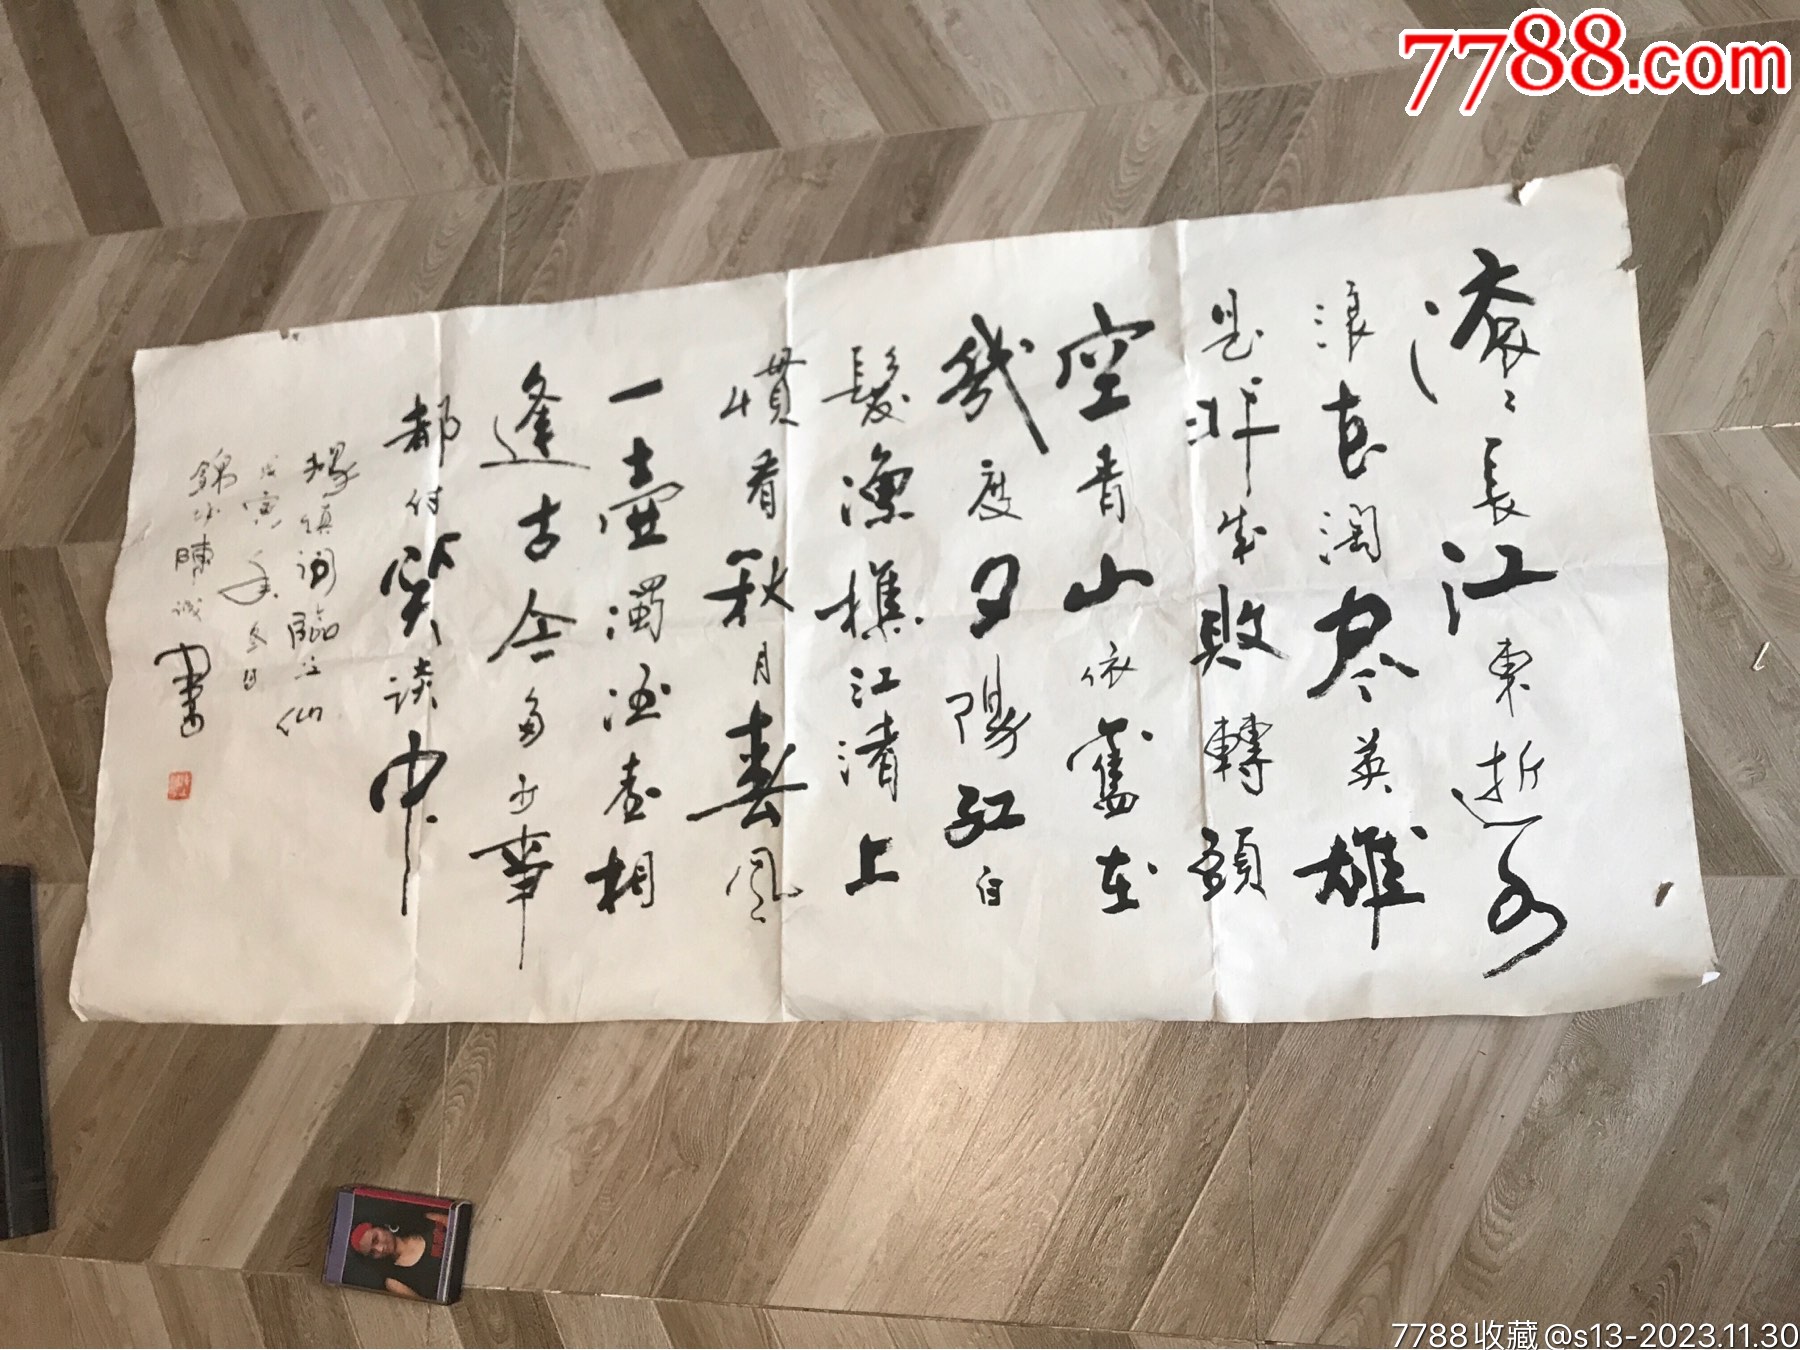 7788.com
滚〻長江東逝水
浪花淘尽英雄
是非成敗轉頭
空青山依舊在
幾度夕陽紅白
髮漁樵江渚上
慣看秋月春風
一壺濁酒喜相
逢古今多少事
都付笑谈中
楊慎词臨江仙
戊寅年冬日
錦 陳诚書
7788收藏@s13-2023.11.30